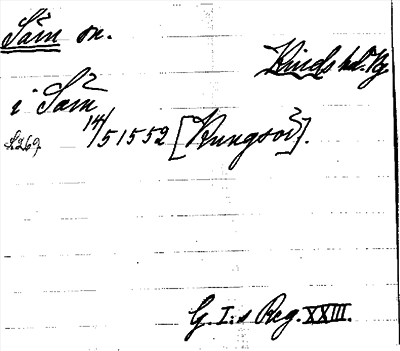 Såm sn.
Kinds hd. Vg.
i Såm
14/5 1552 [Kungsör].
G. I:s Reg. XXIII.